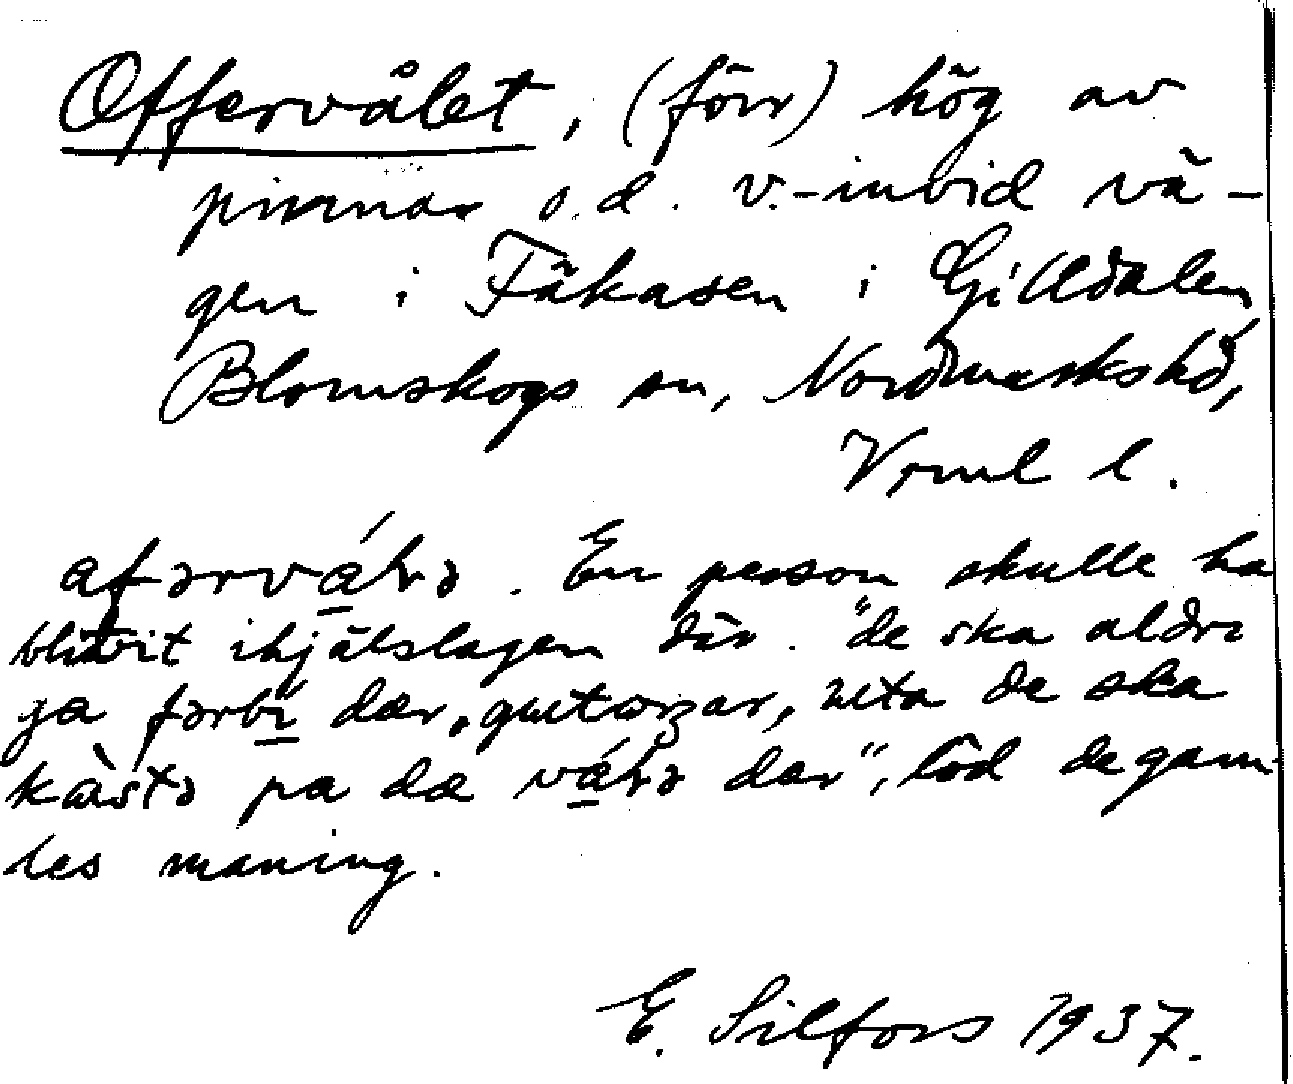 Offervålet, (förr) hög av
pinnar o.d. v.-invid vä-
gen i Fäkasen i Gilldalen
Blomskogs sn, Nordmarks hd,
Vrml l.
afərvá̱lə. En person skulle ha
blivit ihjälslagen där. "de ska aldri
ga fərbi̱ dær, gutərar, uta de ska
kàstə pa dæ vá̱lə dær", löd de gam-
les maning.
E. Silfors 1937.